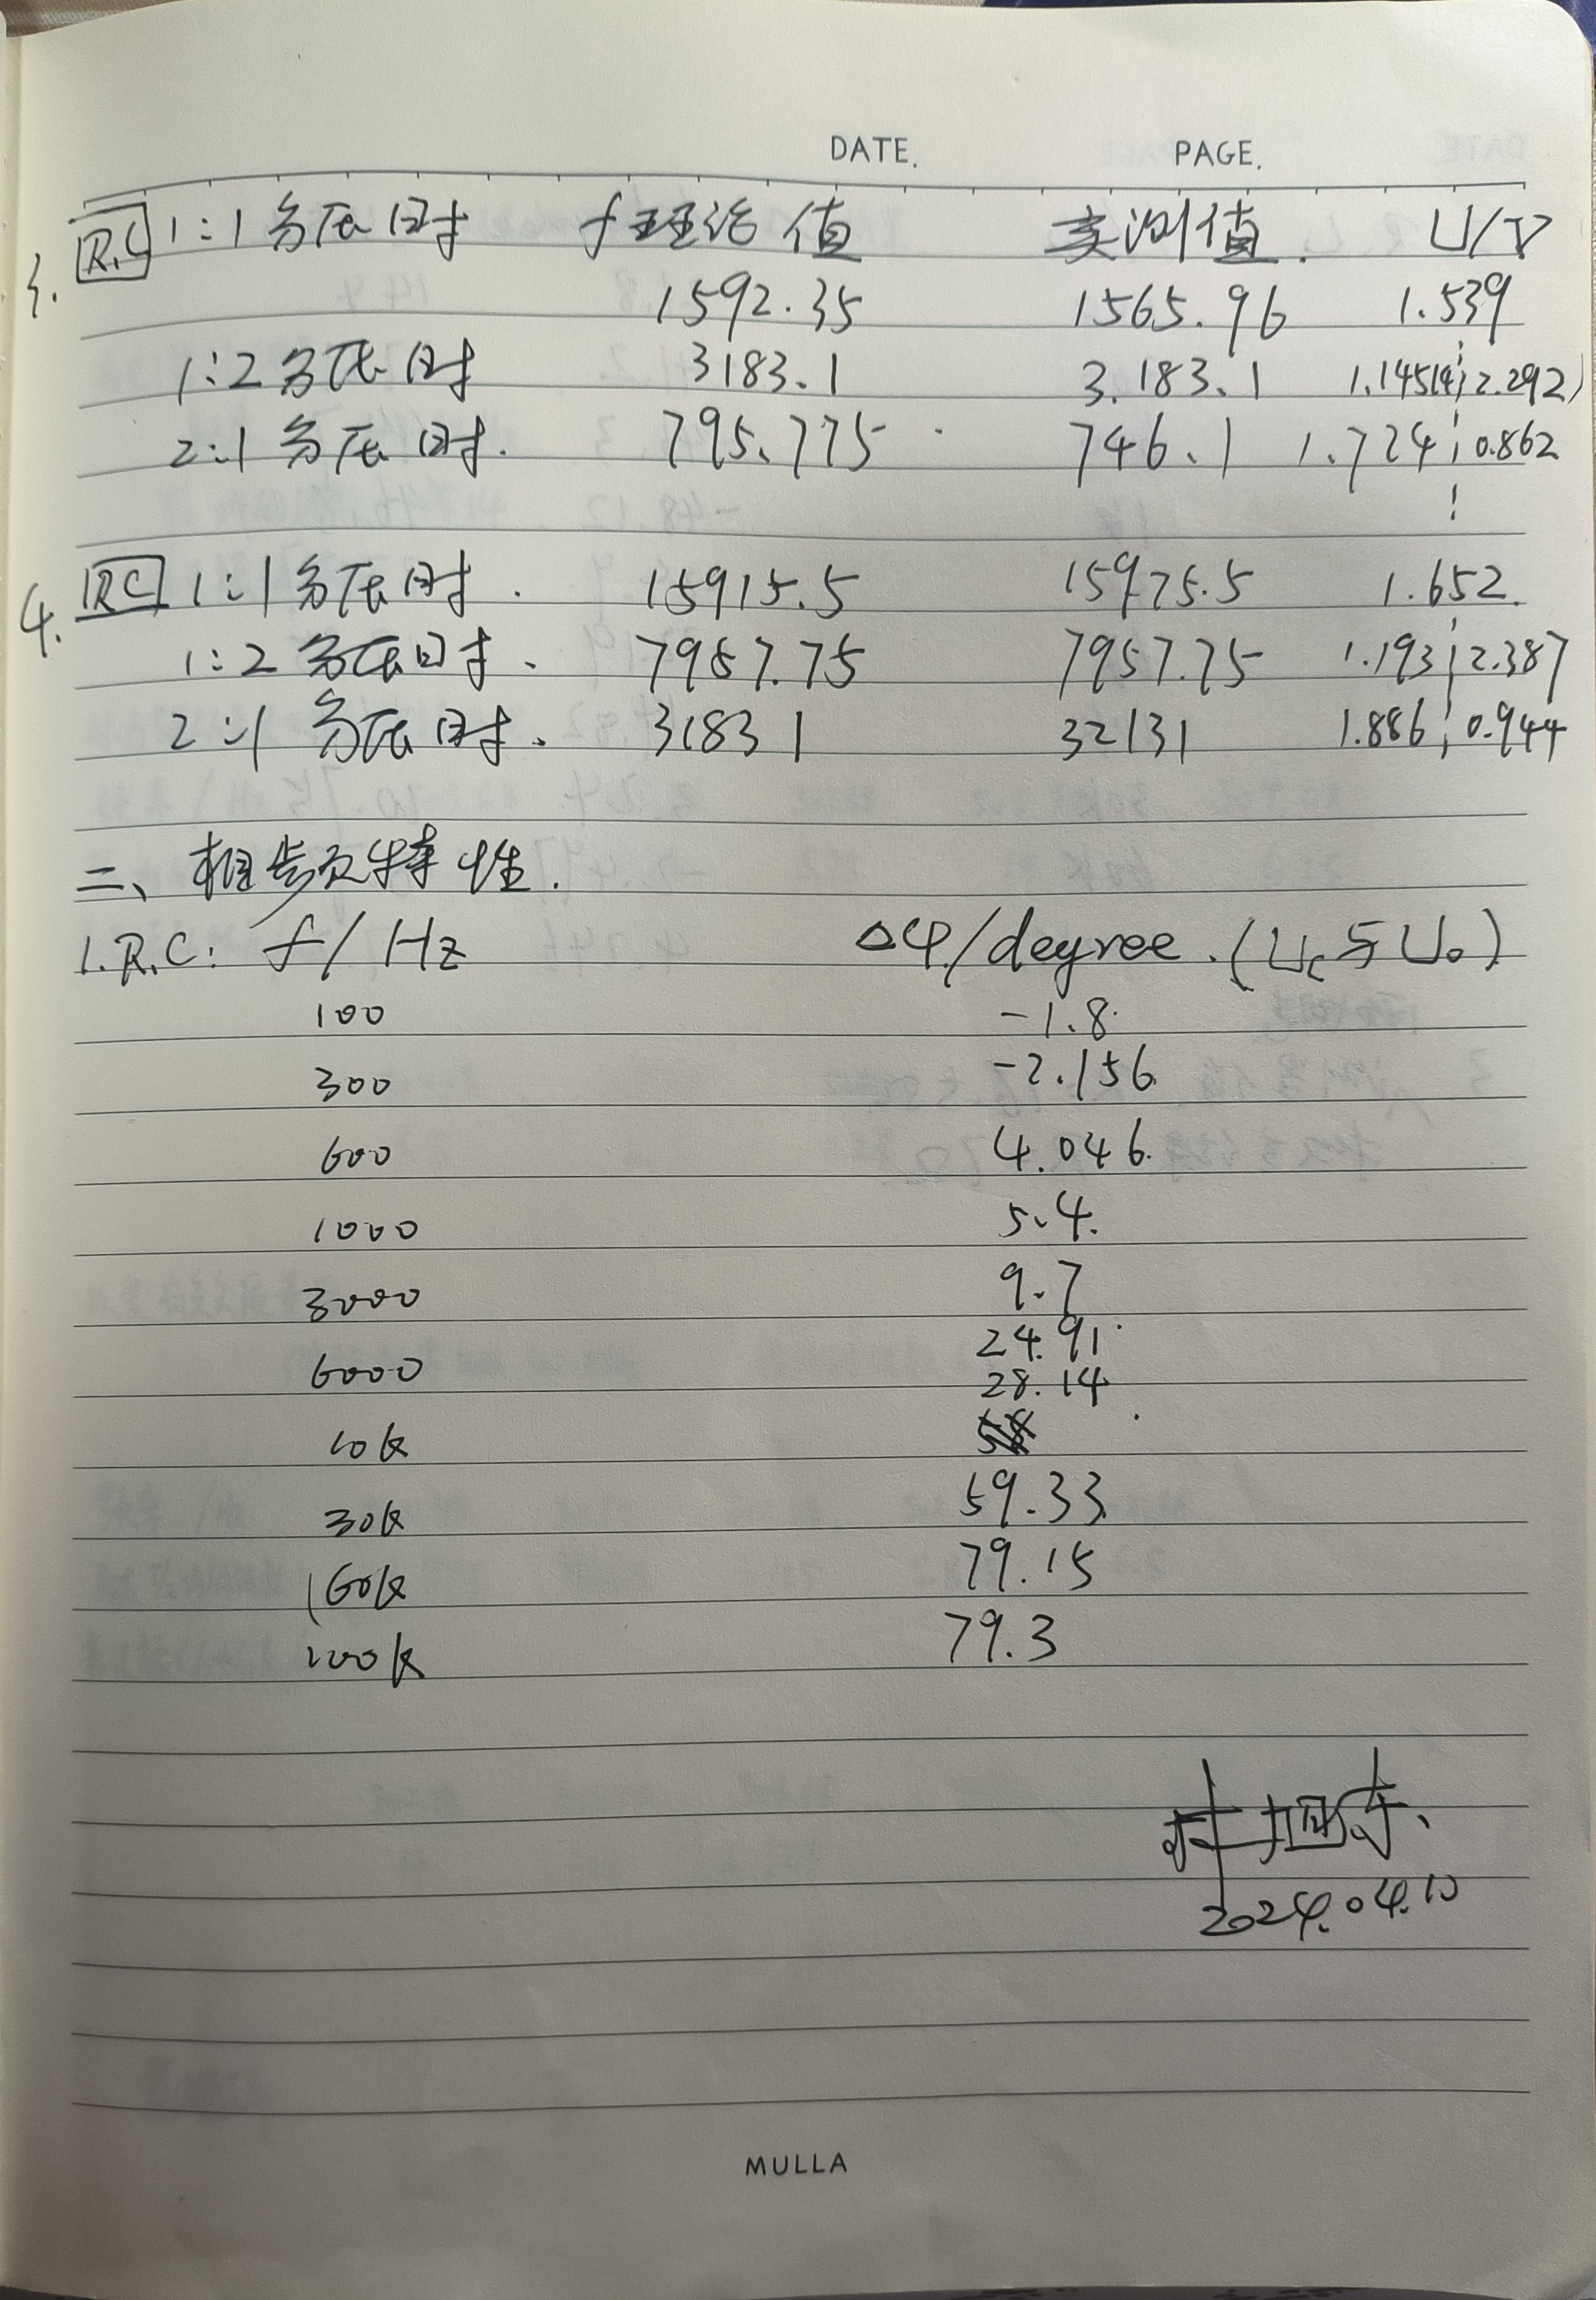 DATE. PAGE.
3. R.C 1:1分压时 f理论值 实测值. U/V
1592.35 1565.96 1.539
1:2分压时 3183.1 3.183.1 1.14514; 2.292)
2:1分压时. 795.775 746.1 1.724; 0.862
4. RC 1:1分压时. 15915.5 15975.5 1.652.
1:2分压时. 7957.75 7957.75 1.193; 2.387
2:1分压时. 31831 32131 1.886; 0.944
二、相频特性.
1.R.C: f/Hz Δφ/degree.(Uc与U₀)
100 -1.8
300 -2.156
600 4.046
1000 5.4.
3000 9.7
24.91
6000 28.14
10k
30k 59.33
60k 79.15
100k 79.3
2024.04.10
MULLA